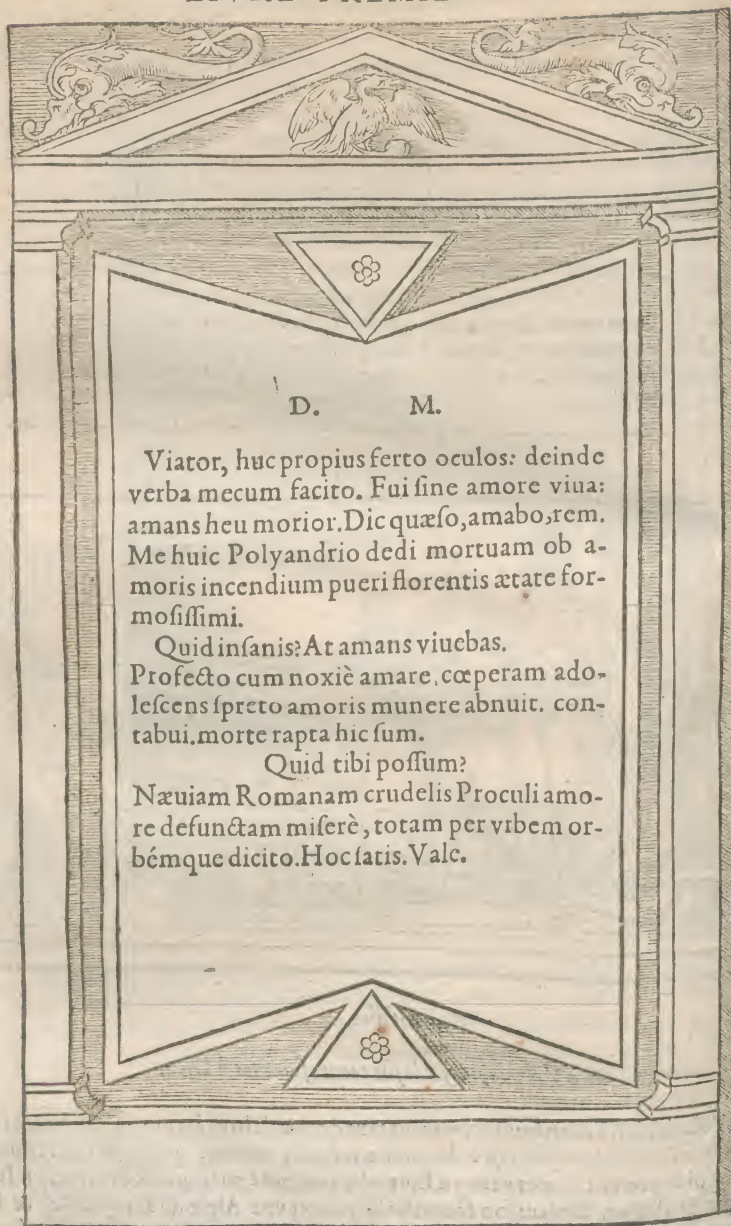 LIVRE PREMIE
D. M.
Viator, huc propius ferto oculos: deinde
verba mecum facito. Fui sine amore viua:
amans heu morior. Dic quæso, amabo, rem.
Me huic Polyandrio dedi mortuam ob a-
moris incendium pueri florentis ætate for-
mosissimi.
Quid insanis? At amans viuebas.
Profecto cum noxiè amare, cœperam ado-
lescens spreto amoris munere abnuit. con-
tabui. morte rapta hic sum.
Quid tibi possum?
Næuiam Romanam crudelis Proculi amo-
re defunctam miserè, totam per vrbem or-
bémque dicito. Hoc satis. Vale.